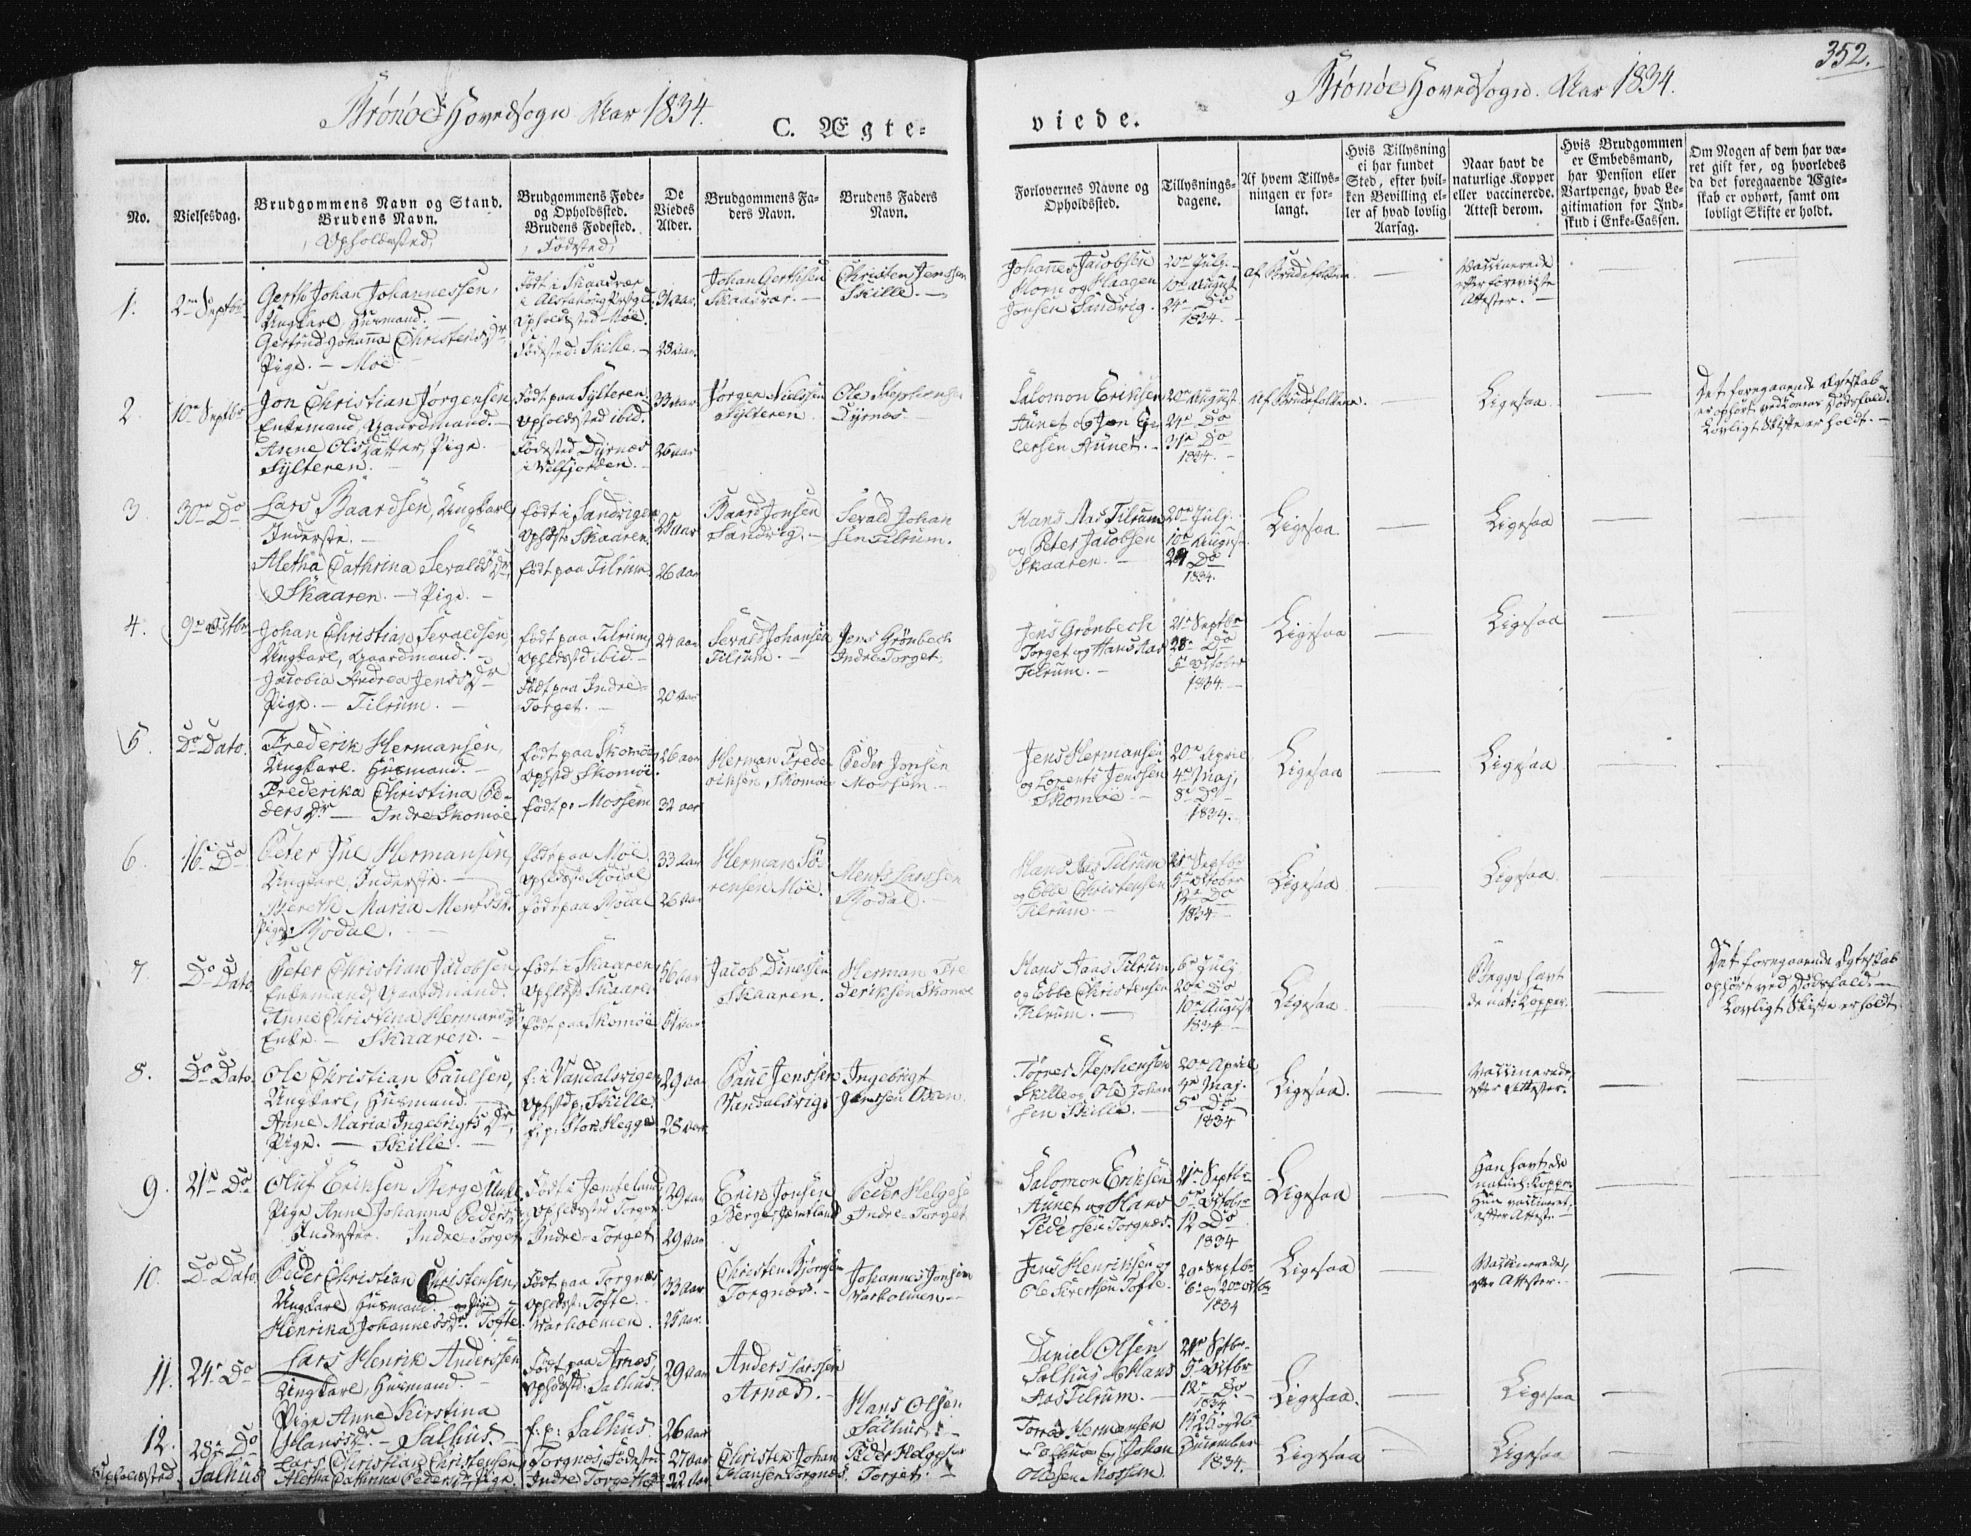 352.
Brönöe Hovedsogn Aar 1834.
C. Ægte-
Brönöe Hovedsogn. Aar 1834.
viede.
No.
Vielsesdag.
Brudgommens Navn og Stand.
Brudens Navn.
Opholdssted,
Brudgommens Føde-
og Opholdssted.
Brudens Fødested.
Födested,
De
Viedes
Alder.
Brudgommens Fa-
ders Navn.
Brudens Faders
Navn.
Forlovernes Navne og
Opholdssted.
Tillysnings-
dagene.
Af hvem Tillys-
ningen er for-
langt.
Hvis Tillysning
ei har fundet
Sted, efter hvil-
ken Bevilling el-
ler af hvad lovlig
Aarsag.
Naar havt de
naturlige Kopper
eller vaccinerede.
Attest derom.
Hvis Brudgommen
er Embedsmand,
har Pension eller
Vartpenge, hvad Le-
gitimation for Ind-
skud i Enke-Cassen.
Om Nogen af dem har væ-
ret gift før, og hvorledes
da det foregaaende Ægte-
skab er ophørt, samt om
lovligt Skifte er holdt.
1.
2den Septbr
Gerth Johan Johannessen,
Ungkarl, Huusmand. —
Gertrud Johanna Christensdr
Pige. — Moe
Födt i Skaasvær
i Alstahoug Præstg.
Opholdssted Möe.
Födested: Skille. —
31 aar.
28 aar.
Johan Gerthsen
Skaasvær. —
Christen Jenssen
Skille. —
Johannes Jacobsen
Moen og Haagen
Jonsen Sandvig.
20de Julj.
10de August
24de Do
1834. —
af Brudefolkene.
Vaccinerede
efter foreviiste
Attester. —
2
10de Septbr
Jon Christian Jörgensen
Enkemand, Gaardmand. —
Anne Olsdatter, Pige.
Sylteren. —
Födt paa Sylteren,
Opholdssted ibid.
Födested Dyrnes
i Velfjorden. —
33 aar
26 aar
Jörgen Nielssen
Sylteren
Ole Stephensen
Dyrnes
Salomon Erichsen
Aunet og Jon Ei-
lersen Aunet. —
20de August
24de Do
31te Do
1834. —
af Brudefolkene.
Ligesaa.
Det foregaaende Ægteskab
er ophört ved Konens Dödsfald.
Lovligt Skifte er holdt. —
3
30te Do
Lars Baardsen, Ungkarl,
Inderste. —
Aletha Cathrina Sevaldsdr,
Skaaren. — Pige. —
födt i Sandvigen
Opholdst: Skaaren.
födt paa Tilrum.
29 aar
26 aar
Baard Jonsen
Sandvig. —
Sevald Johan
sen Tilrum.
Hans Aas Tilrum
og Peter Jacobsen
Skaaren. —
20de Julj.
10de August
24 Do
1834.
Ligesaa
Ligesaa
4.
9de Octbr
Johan Christian Sevaldsen,
Ungkarl, Gaardmand. —
Jacobia Andrea Jensdr
Pige. — Tilrum. —
födt paa Tilrum,
Opholdsstd ibid. —
Födt paa Indre-
Torget. —
24 aar
20 aar
Sevald Johansen
Tilrum. —
Jens Grönbech
Indre Torget.
Jens Grönbech
Torget og Hans Aas
Tilrum. —
21de Septbr
28de Do
5te October
1834. —
Ligesaa
Ligesaa
5.
Do Dato.
Frederik Hermansen,
Ungkarl. Huusmand. —
Frederika Christina Pe-
dersdr — Indre Skomoe
födt paa Skomoe,
Ophstd Skomoe.
födt p: Mossem
26 aar
32 aar
Herman Frede
richsen Skomoe
Peder Jonsen
Mossem —
Jens Hermansen
og Lorents Jenssen
Skomoe —
20de April
4de Maj,
8de Do
1834.
Ligesaa
Ligesaa
6.
16de Do
Peter Juel Hermansen,
Ungkarl, Inderste. —
Bereth Maria Mentsdr.
Pige. Rodal.
födt paa Möe.
Opholdst: Rodal
födt paa Rodal
33 aar
26 aar
Herman Sö-
rensen Möe.
Ments Larssen
Rodal.
Hans Aas Tilrum
og Ebbe Christensen
Tilrum. —
21de Septbr
5te October
12te Do
1834. —
Ligesaa.
Ligesaa.
7.
Do Dato
Peter Christian Jacobsen,
Enkemand, Gaardmand.
Anne Christina Hermansdr
Enke. — Skaaren. —
födt i Skaaren
Opholdst Skaaren
födt paa Skomoe
56 aar
51 aar
Jacob Dinessen
Skaaren.
Herman Fre
deriksen Skomoe
Hans Aas Tilrum,
og Ebbe Christensen
Tilrum. —
6te Julj
20de Do
10de August
1834 —
Ligesaa.
Begge havt
de nat: Kopper.
Det foregaaende Ægteskab
ophört ved Dödsfald. —
Lovligt Skifte er holdt
8.
Do Dato.
Ole Christian Paulsen,
Ungkarl, Huusmand. —
Anne Maria Ingebrigtsdr,
Pige. — Skille. —
f: i Vandalsvigen
Ophstd p: Skille.
f: p: Stor Hegge
29 aar
28 aar
Paul Jenssen
Vandalsvig.
Ingebrigt
Jenssen Oxen.
Törres Stephensen
Skille og Ole Johan
sen Skille. —
20de April
4de Maj.
5te Do
1834
Ligesaa.
Vaccinerede
efter Attester.
9.
21de Do
Oluf Erichsen Berge, Unk.
Pige Anne Johanna Pedersd
Inderster. Indre Torget
Födt i Jæmteland
Opholdsstd Torget
Indre-Torget
29 aar
29 aar
Erich Jonsen
Berge Jämtland
Peder Helgese
Indre-Torget
Salomon Erichsen
Aunet og Hans
Pedersen Torgnæs.
21de Septbr
5te October
12 Do
1834
Ligesaa
Han havt de
naturl: Kopper.
Hun vaccineret
efter Attest. —
10.
Do Dato.
Peder Christian Christensen,
Ungkarl Huusmand. og Pige
Henrika Johannesdr. Tofte
Födt paa Torgnæs
Opholdst: Tofte.
Varholmen.
33 aar
25 aar.
Christen Björnsen
Torgnæs. —
Johannes Jonsen
Varholmen —
Jens Henriksen og
Ole Sivertsen Tofte.
20de Septbr
6te og 20de Octbr
1834
Ligesaa
Vaccinerede,
efter Attester. —
11.
24de Do
Lars Henrik Anderssen
Ungkarl, Huusmand. —
Pige Anne Kirstina
Hansdr. — Salhus. —
Födt paa Arnæs
Opholdst: Salhus.
f: p: Salhus.
29 aar
26 aar
Anders Larssen
Arnæs. —
Hans Olsen
Salhus. —
Daniel Olsen
Salhus & Hans
Aas Tilrum. —
21de Sptbr
5te Octbr
12te Do
1834
Ligesaa.
Ligesaa
12.
28de Do
Opholdssted Salhus
Lars Christian Christensen
Aletha Cathrina Pedersd Pige.
Torgnæs, Födested
Indre Torget
27 aar
22 aar
Christen Johan
Hansen Torgnæs
Peder Helgesen
Torget. —
Torris Hermansen
Salhus og Johan
Olesen Mossem
14, 25 og 26
December
1834.
Ligesaa
Ligesaa